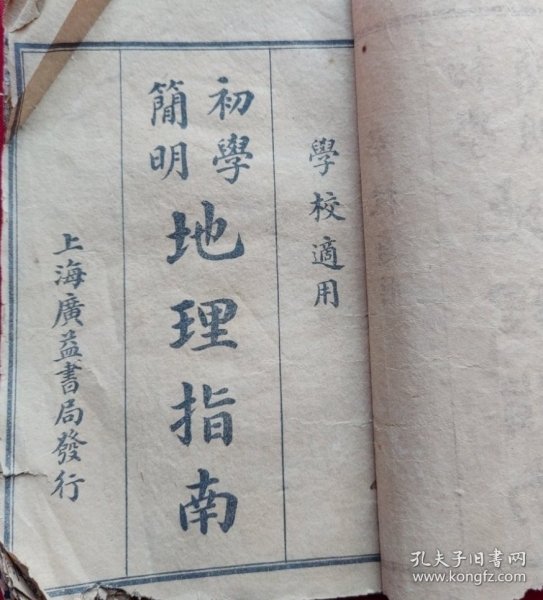 學校適用
初學
簡明
地理指南
上海廣益書局發行
孔夫子旧书网
www.kongfz.com